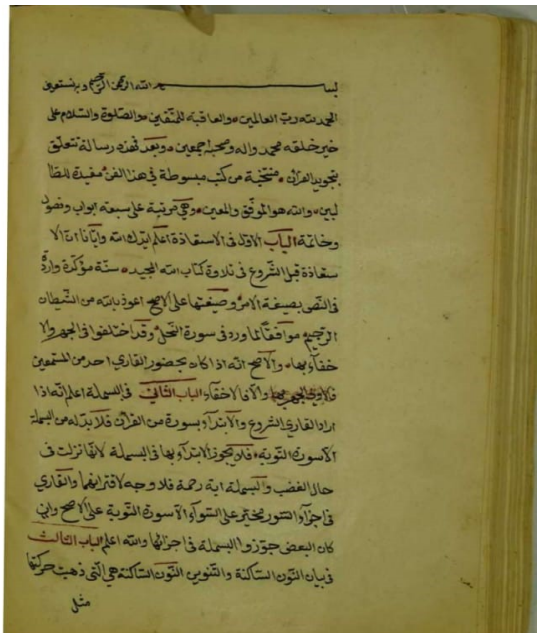 بسم الله الرحمن الرحيم وبه نستعين
الحمد لله رب العالمين والعاقبة للمتقين والصلوة والسلام على
خير خلقه محمد واله وصحبه اجمعين وبعد فهذه رسالة تتعلق
بتجويد القرآن منتخبة من كتب مبسوطة فى هذا الفن مفيدة للطا
لبين والله هو الموفق والمعين وهى مرتبة على سبعة ابواب وفصول
وخاتمة الباب الاول فى الاستعاذة اعلم ايدك الله وايانا ان الا
ستعاذة قبل الشروع فى تلاوة كتاب الله المجيد سنة مؤكدة وارد
فى النص بصيغة الامر وصيغتها على الاصح اعوذ بالله من الشيطان
الرجيم موافقا لما ورد فى سورة النحل وقد اختلفوا فى الجهر والا
خفاء بها والاصح انه اذا كان بحضور القارى احد من المستمعين
فالاولى الجهر بها والا فالاخفاء الباب الثانى فى البسملة اعلم انه اذا
اراد القارى الشروع والابتداء بسورة من القرآن فلا بد له من البسملة
الا سورة التوبة فلا يجوز الابتداء بها فى البسملة لانها نزلت فى
حال الغضب والبسملة اية رحمة فلا وجه لاقترانهما والقارى
فى اجزاء السور يخير على السواء الا سورة التوبة على الاصح وان
كان البعض جوزوا البسملة فى اجزائها والله اعلم الباب الثالث
فى بيان النون الساكنة والتنوين النون الساكنة هى التى ذهبت حركتها
مثل